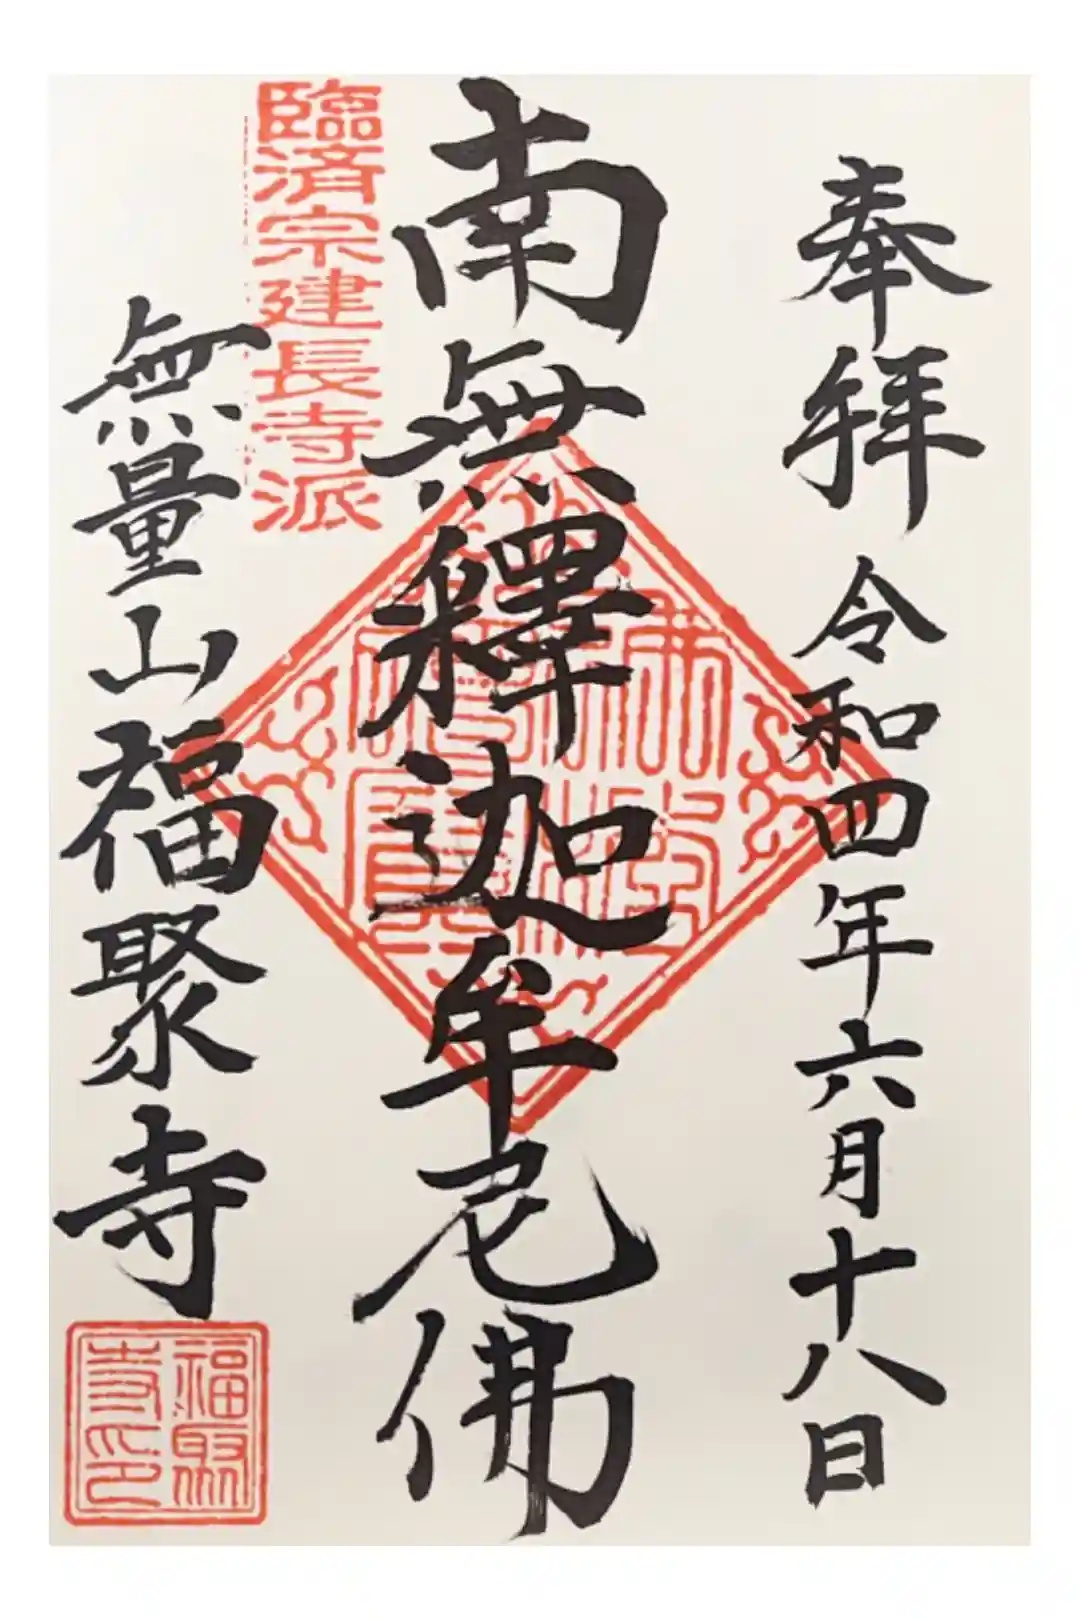 奉拝 令和四年六月十八日
南無釋迦牟尼佛
臨済宗建長寺派
無量山福聚寺
福聚寺印
佛法僧寶